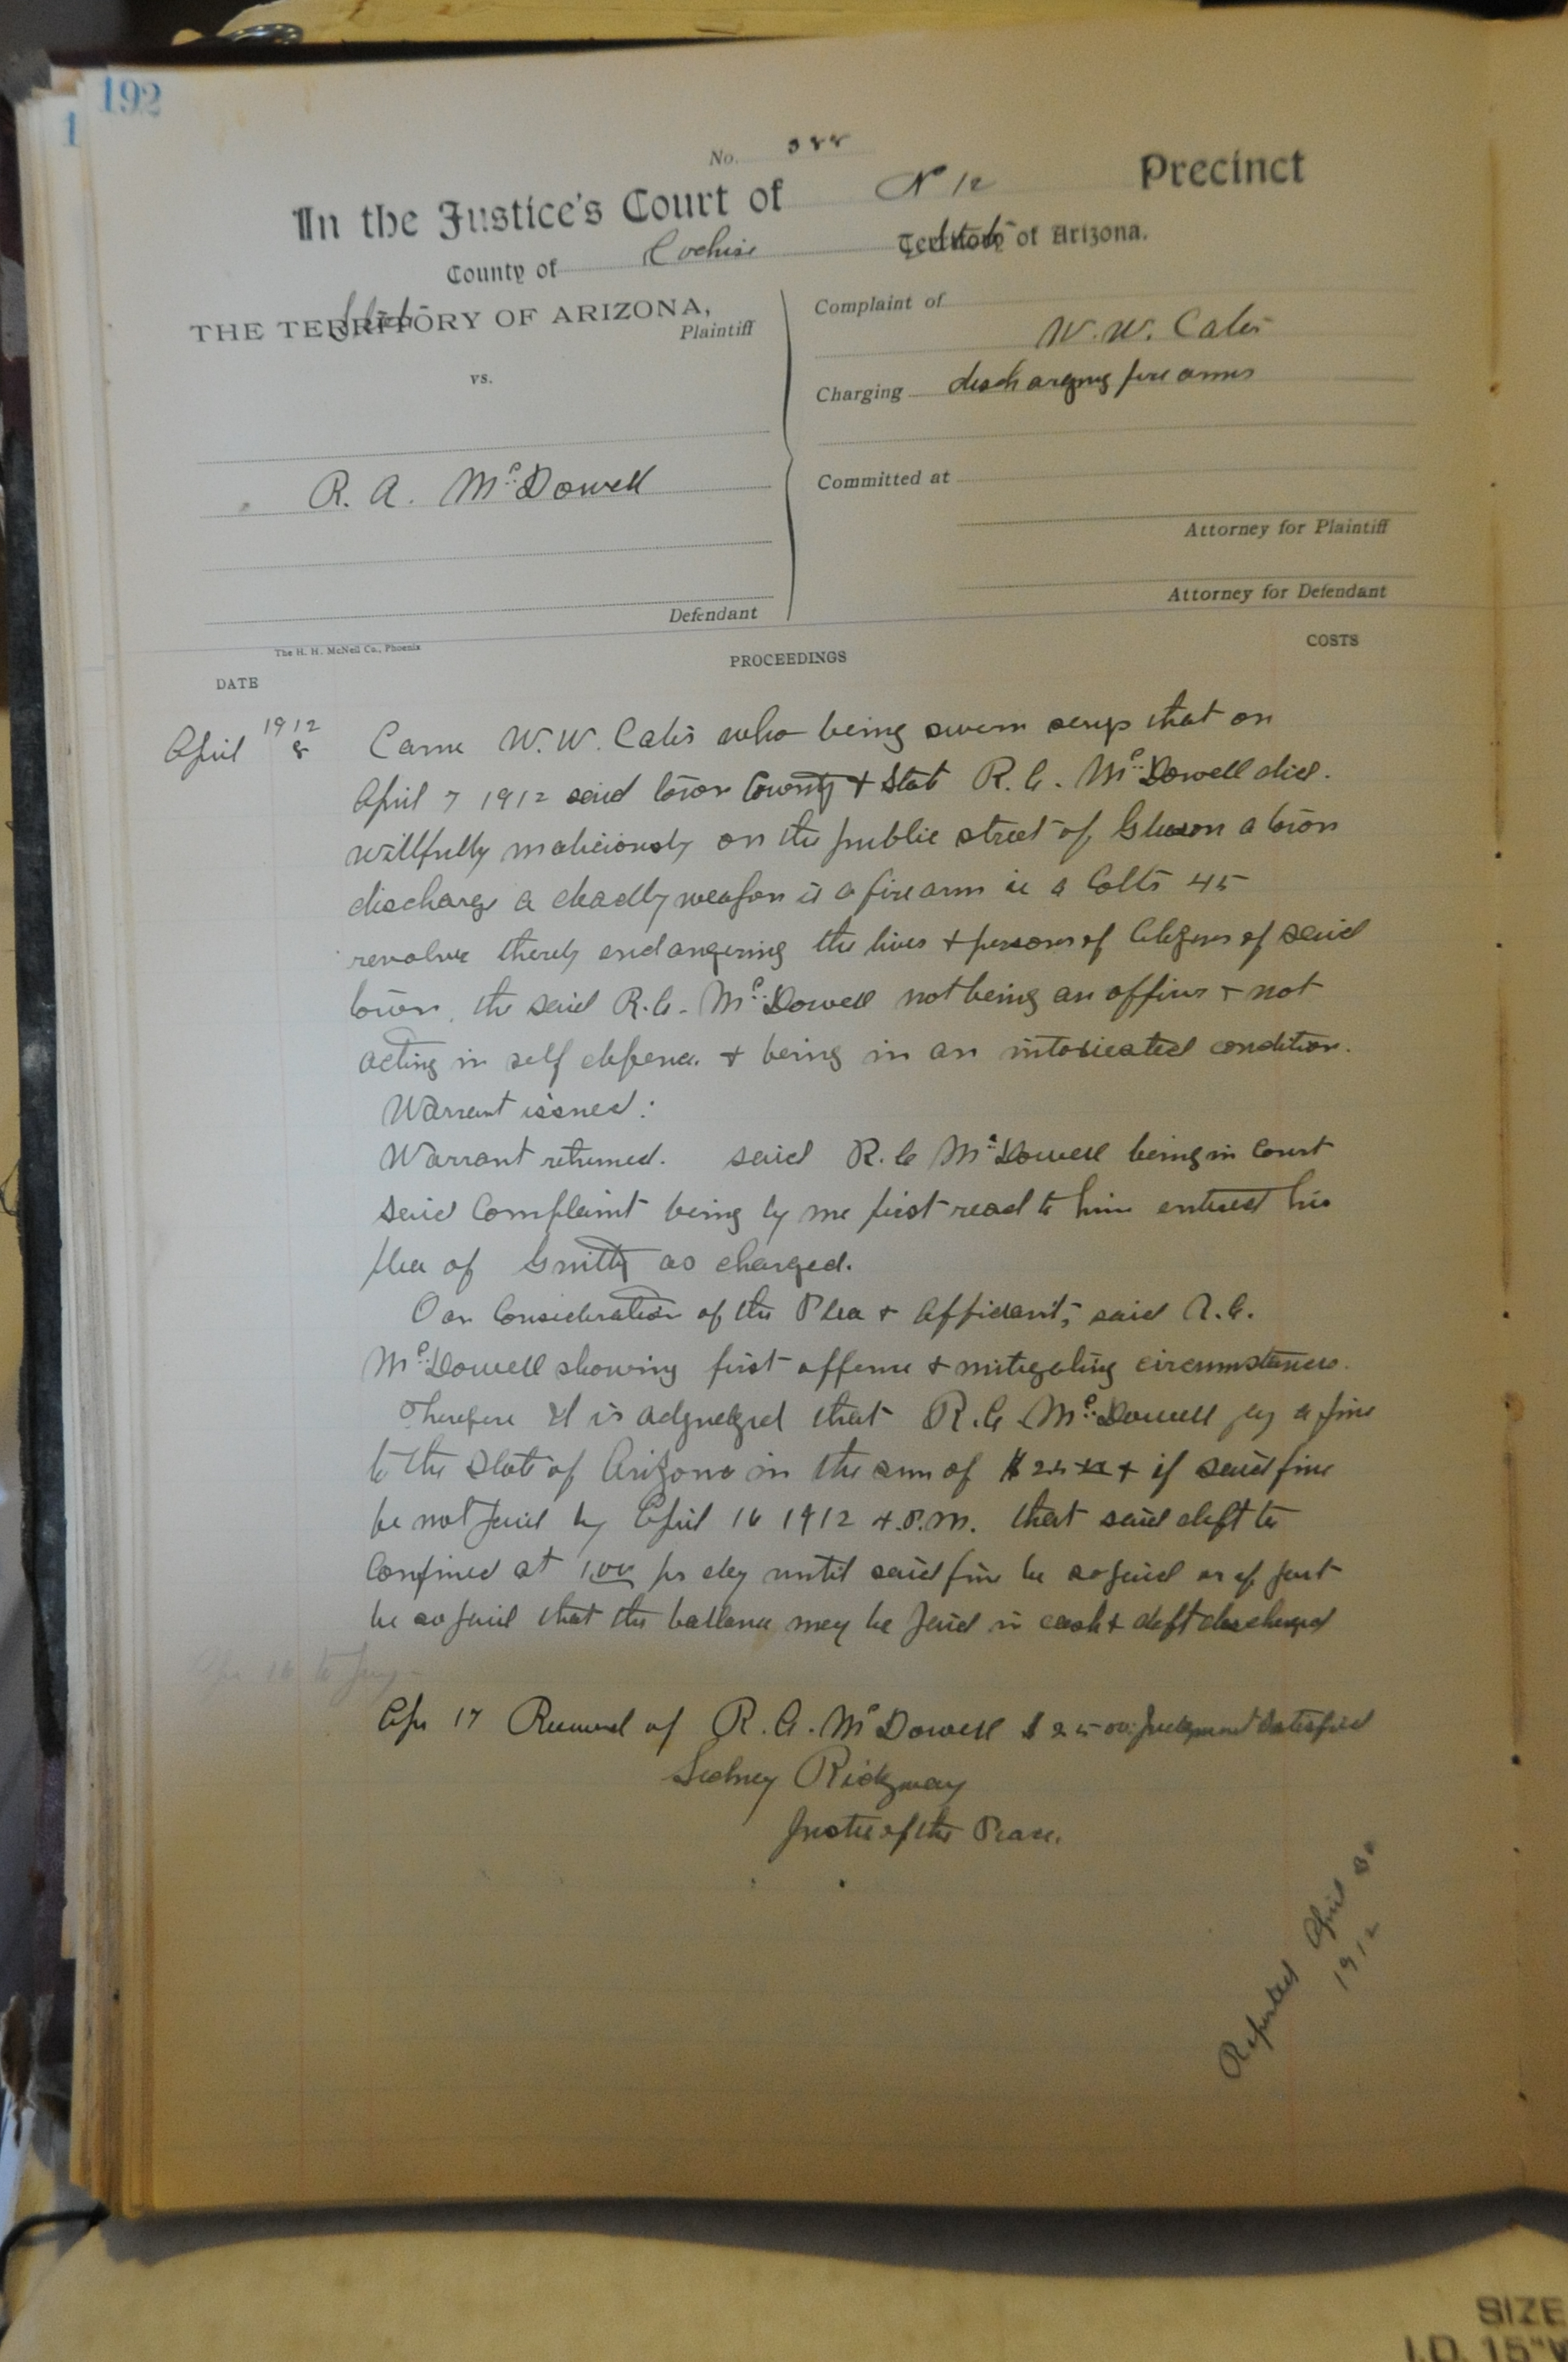 192
1
No. 388
In the Justice's Court of No 12 Precinct
County of Cochise State of Arizona.
State
THE TERRITORY OF ARIZONA,
Plaintiff
vs.
R. A. McDowell
Defendant
Complaint of
W. W. Cates
Charging discharging fire arms
Committed at
Attorney for Plaintiff
Attorney for Defendant
The H. H. McNeil Co., Phoenix
DATE PROCEEDINGS COSTS
1912
April 8 Came W. W. Cates who being sworn says that on
April 7 1912 said town County & State R. A. McDowell did
willfully maliciously on the public street of Gleeson a town
discharge a deadly weapon is a fire arm ie a Colts 45
revolver thereby endangering the lives & persons of Citizens of said
town, the said R. A. McDowell not being an officer & not
acting in self defence & being in an intoxicated condition.
Warrant issued:
Warrant returned. said R. A McDowell being in Court
said Complaint being by me first read to him entered his
plea of Guilty as charged.
On Consideration of the Plea & Affidavit, said R. A.
McDowell showing first offence & mitigating circumstances.
Therefore it is adjudged that R. A. McDowell pay a fine
to the State of Arizona in the sum of $ & if said fine
be not paid by April 16 1912 4. P. M. that said deft be
Confined at 1.00 per day until said fine be so paid or if part
be so paid that the ballance may be paid in cash & deft discharged
Apr 16
Apr 17 Received of R. A. McDowell $ 25 00 Judgment Satisfied
Sidney Ridgway
Justice of the Peace.
Reported April 30
1912
SIZE
I.D. 15"